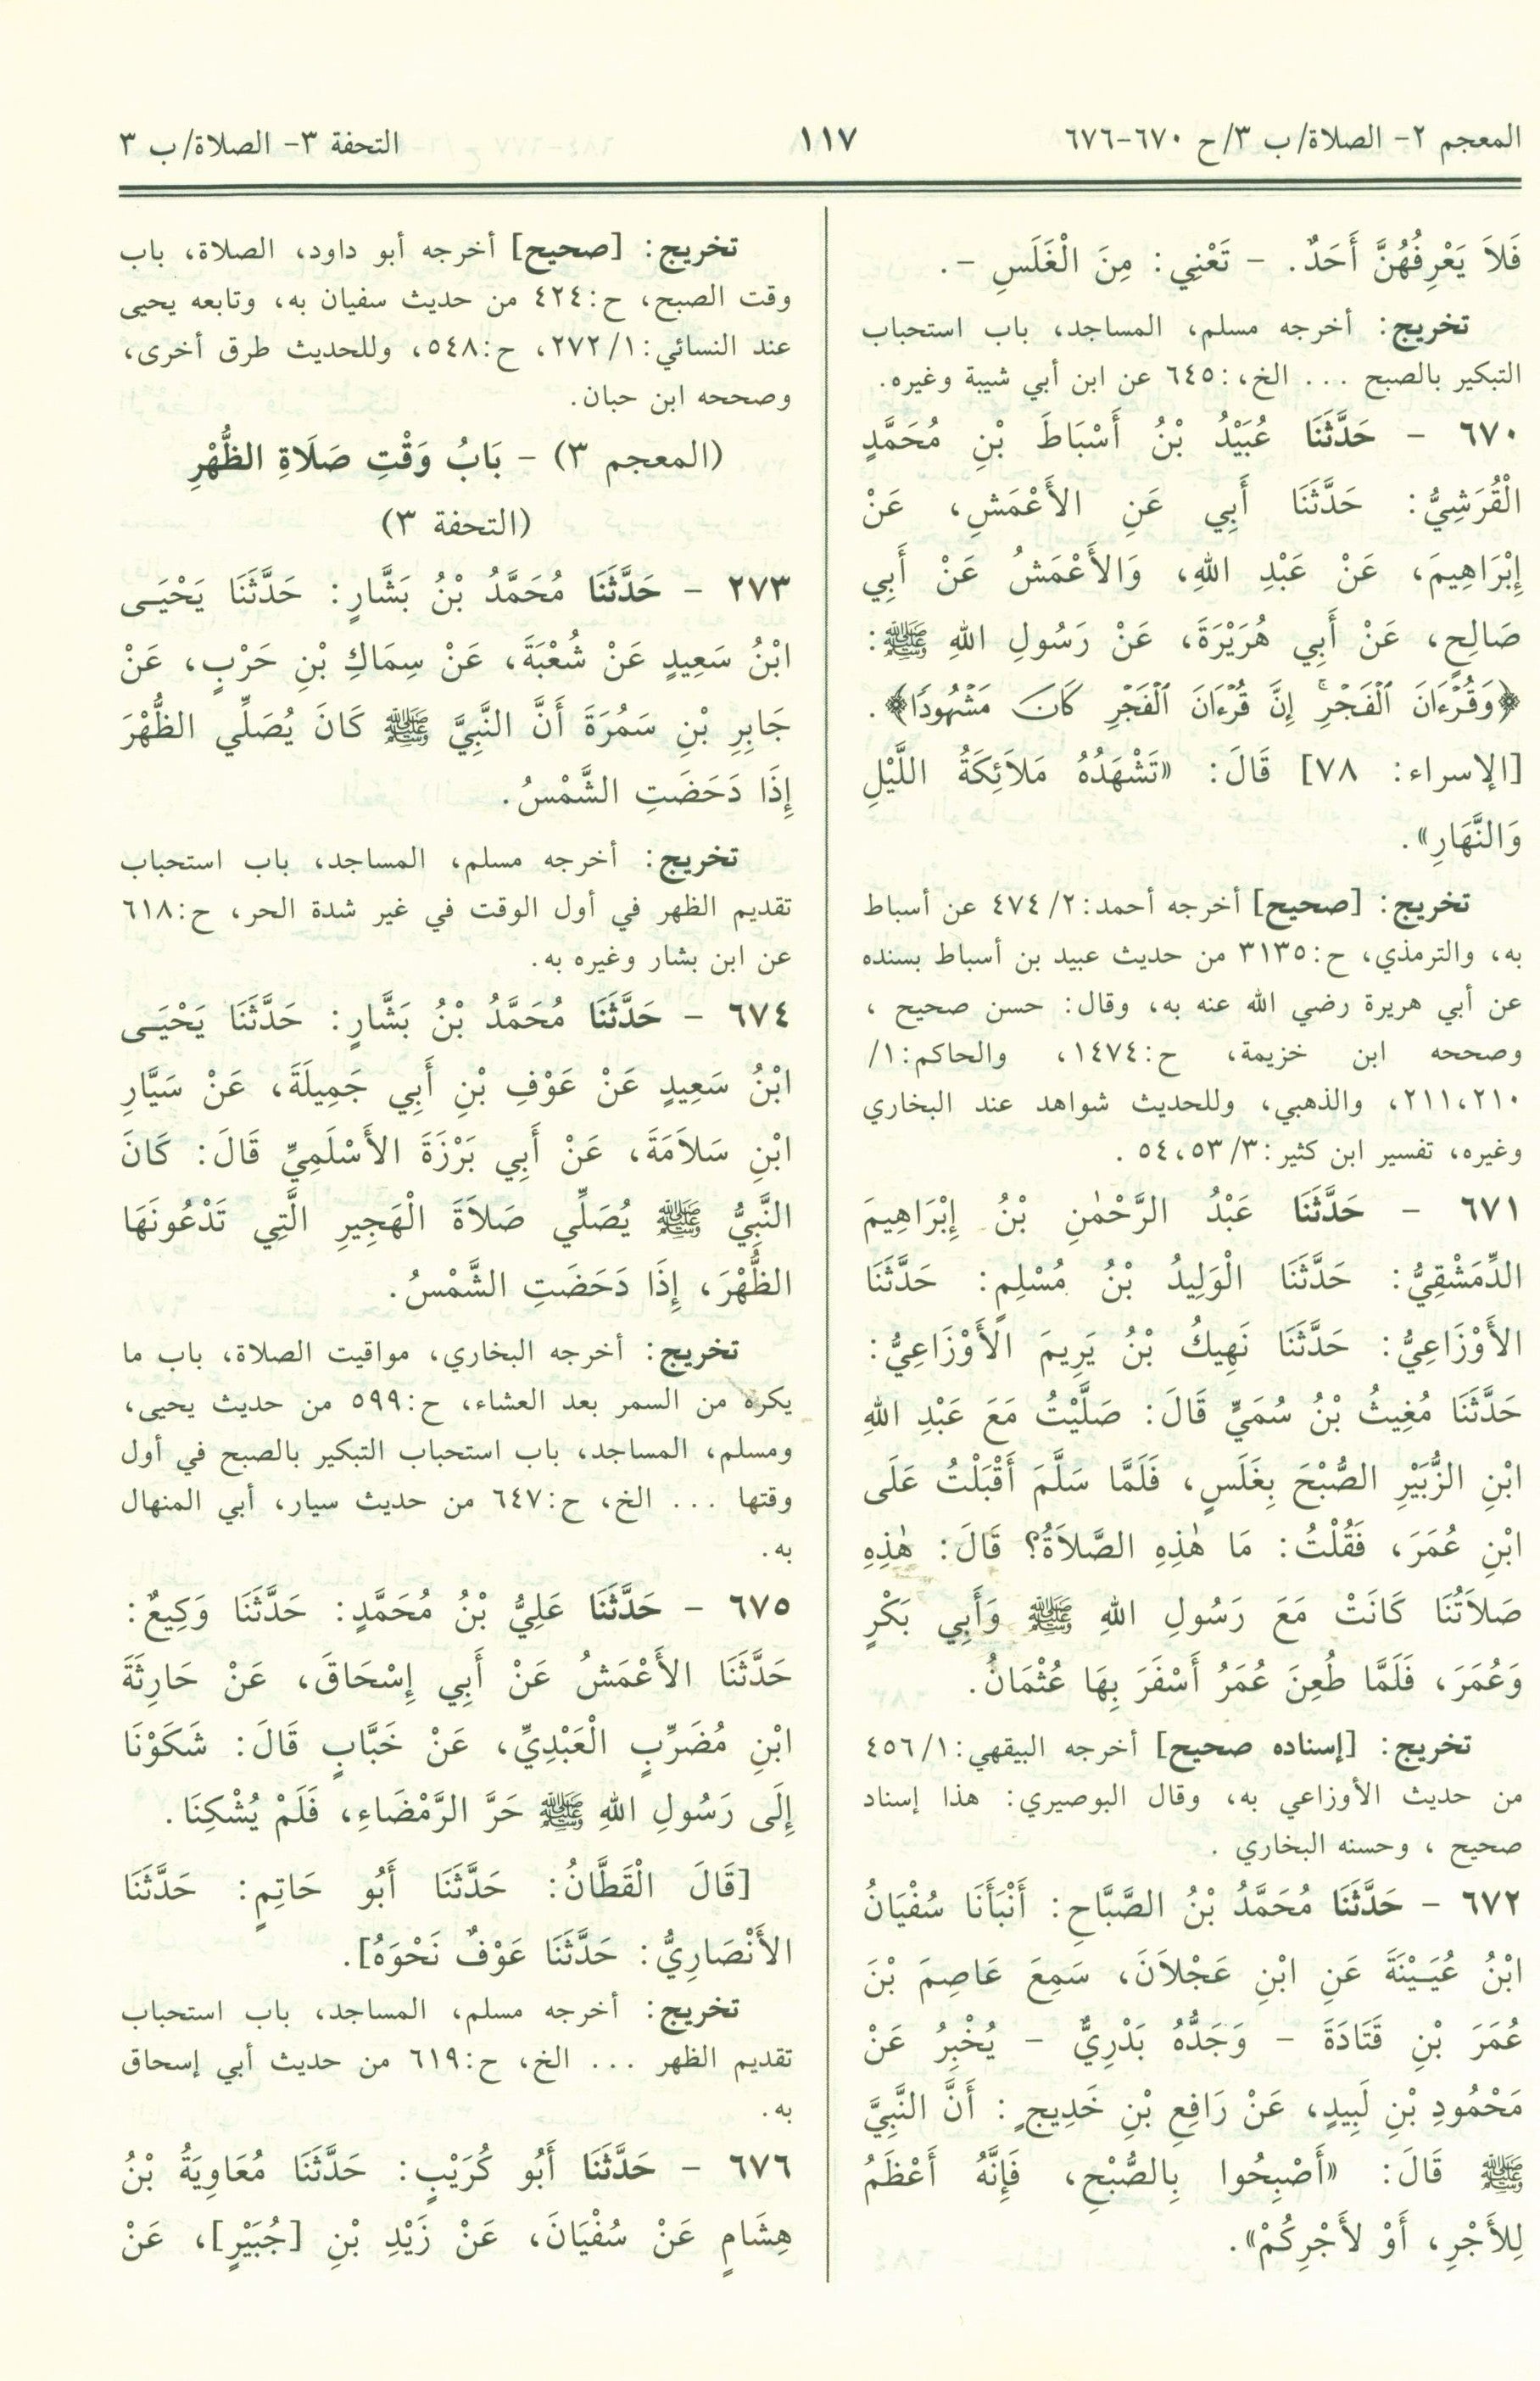 المعجم ٢- الصلاة/ ب ٣/ ح ٦٧٠-٦٧٦
١١٧
التحفة ٣- الصلاة/ ب ٣
فَلاَ يَعْرِفُهُنَّ أَحَدٌ. - تَعْنِي: مِنَ الْغَلَسِ -.
تخريج: أخرجه مسلم، المساجد، باب استحباب
التبكير بالصبح ... الخ،:٦٤٥ عن ابن أبي شيبة وغيره.
٦٧٠ - حَدَّثَنَا عُبَيْدُ بْنُ أَسْبَاطَ بْنِ مُحَمَّدٍ
الْقُرَشِيُّ: حَدَّثَنَا أَبِي عَنِ الأَعْمَشِ، عَنْ
إِبْرَاهِيمَ، عَنْ عَبْدِ اللهِ، وَالأَعْمَشُ عَنْ أَبِي
صَالِحٍ، عَنْ أَبِي هُرَيْرَةَ، عَنْ رَسُولِ اللهِ ﷺ:
﴿وَقُرْءَانَ ٱلْفَجْرِۖ إِنَّ قُرْءَانَ ٱلْفَجْرِ كَانَ مَشْهُودًا﴾.
[الإسراء: ٧٨] قَالَ: «تَشْهَدُهُ مَلاَئِكَةُ اللَّيْلِ
وَالنَّهَارِ».
تخريج: [صحيح] أخرجه أحمد:٢/ ٤٧٤ عن أسباط
به، والترمذي، ح:٣١٣٥ من حديث عبيد بن أسباط بسنده
عن أبي هريرة رضي الله عنه به، وقال: حسن صحيح ،
وصححه ابن خزيمة، ح:١٤٧٤، والحاكم:١/
٢١٠،٢١١، والذهبي، وللحديث شواهد عند البخاري
وغيره، تفسير ابن كثير:٣/ ٥٣،٥٤ .
٦٧١ - حَدَّثَنَا عَبْدُ الرَّحْمٰنِ بْنُ إِبْرَاهِيمَ
الدِّمَشْقِيُّ: حَدَّثَنَا الْوَلِيدُ بْنُ مُسْلِمٍ: حَدَّثَنَا
الأَوْزَاعِيُّ: حَدَّثَنَا نَهِيكُ بْنُ يَرِيمَ الأَوْزَاعِيُّ:
حَدَّثَنَا مُغِيثُ بْنُ سُمَيٍّ قَالَ: صَلَّيْتُ مَعَ عَبْدِ اللهِ
ابْنِ الزُّبَيْرِ الصُّبْحَ بِغَلَسٍ، فَلَمَّا سَلَّمَ أَقْبَلْتُ عَلَى
ابْنِ عُمَرَ، فَقُلْتُ: مَا هٰذِهِ الصَّلاَةُ؟ قَالَ: هٰذِهِ
صَلاَتُنَا كَانَتْ مَعَ رَسُولِ اللهِ ﷺ وَأَبِي بَكْرٍ
وَعُمَرَ، فَلَمَّا طُعِنَ عُمَرُ أَسْفَرَ بِهَا عُثْمَانُ.
تخريج: [إسناده صحيح] أخرجه البيقهي:١/ ٤٥٦
من حديث الأوزاعي به، وقال البوصيري: هذا إسناد
صحيح ، وحسنه البخاري .
٦٧٢ - حَدَّثَنَا مُحَمَّدُ بْنُ الصَّبَّاحِ: أَنْبَأَنَا سُفْيَانُ
ابْنُ عُيَيْنَةَ عَنِ ابْنِ عَجْلاَنَ، سَمِعَ عَاصِمَ بْنَ
عُمَرَ بْنِ قَتَادَةَ - وَجَدُّهُ بَدْرِيٌّ - يُخْبِرُ عَنْ
مَحْمُودِ بْنِ لَبِيدٍ، عَنْ رَافِعِ بْنِ خَدِيجٍ: أَنَّ النَّبِيَّ
ﷺ قَالَ: «أَصْبِحُوا بِالصُّبْحِ، فَإِنَّهُ أَعْظَمُ
لِلأَجْرِ، أَوْ لأَجْرِكُمْ».
تخريج: [صحيح] أخرجه أبو داود، الصلاة، باب
وقت الصبح، ح:٤٢٤ من حديث سفيان به، وتابعه يحيى
عند النسائي:١/ ٢٧٢، ح:٥٤٨، وللحديث طرق أخرى،
وصححه ابن حبان.
(المعجم ٣) - بَابُ وَقْتِ صَلَاةِ الظُّهْرِ
(التحفة ٣)
٢٧٣ - حَدَّثَنَا مُحَمَّدُ بْنُ بَشَّارٍ: حَدَّثَنَا يَحْيَى
ابْنُ سَعِيدٍ عَنْ شُعْبَةَ، عَنْ سِمَاكِ بْنِ حَرْبٍ، عَنْ
جَابِرِ بْنِ سَمُرَةَ أَنَّ النَّبِيَّ ﷺ كَانَ يُصَلِّي الظُّهْرَ
إِذَا دَحَضَتِ الشَّمْسُ.
تخريج: أخرجه مسلم، المساجد، باب استحباب
تقديم الظهر في أول الوقت في غير شدة الحر، ح:٦١٨
عن ابن بشار وغيره به.
٦٧٤ - حَدَّثَنَا مُحَمَّدُ بْنُ بَشَّارٍ: حَدَّثَنَا يَحْيَى
ابْنُ سَعِيدٍ عَنْ عَوْفِ بْنِ أَبِي جَمِيلَةَ، عَنْ سَيَّارِ
ابْنِ سَلاَمَةَ، عَنْ أَبِي بَرْزَةَ الأَسْلَمِيِّ قَالَ: كَانَ
النَّبِيُّ ﷺ يُصَلِّي صَلاَةَ الْهَجِيرِ الَّتِي تَدْعُونَهَا
الظُّهْرَ، إِذَا دَحَضَتِ الشَّمْسُ.
تخريج: أخرجه البخاري، مواقيت الصلاة، باب ما
يكره من السمر بعد العشاء، ح:٥٩٩ من حديث يحيى،
ومسلم، المساجد، باب استحباب التبكير بالصبح في أول
وقتها ... الخ، ح:٦٤٧ من حديث سيار، أبي المنهال
به.
٦٧٥ - حَدَّثَنَا عَلِيُّ بْنُ مُحَمَّدٍ: حَدَّثَنَا وَكِيعٌ:
حَدَّثَنَا الأَعْمَشُ عَنْ أَبِي إِسْحَاقَ، عَنْ حَارِثَةَ
ابْنِ مُضَرِّبٍ الْعَبْدِيِّ، عَنْ خَبَّابٍ قَالَ: شَكَوْنَا
إِلَى رَسُولِ اللهِ ﷺ حَرَّ الرَّمْضَاءِ، فَلَمْ يُشْكِنَا.
[قَالَ الْقَطَّانُ: حَدَّثَنَا أَبُو حَاتِمٍ: حَدَّثَنَا
الأَنْصَارِيُّ: حَدَّثَنَا عَوْفٌ نَحْوَهُ].
تخريج: أخرجه مسلم، المساجد، باب استحباب
تقديم الظهر ... الخ، ح:٦١٩ من حديث أبي إسحاق
به.
٦٧٦ - حَدَّثَنَا أَبُو كُرَيْبٍ: حَدَّثَنَا مُعَاوِيَةُ بْنُ
هِشَامٍ عَنْ سُفْيَانَ، عَنْ زَيْدِ بْنِ [جُبَيْرٍ]، عَنْ